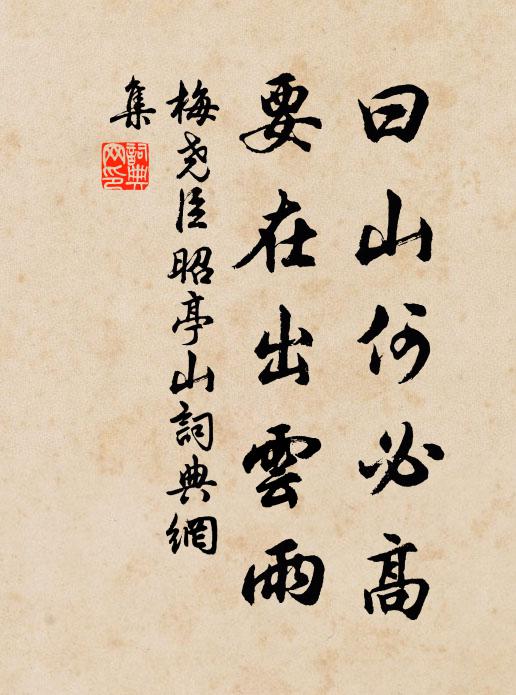 曰山何必高
要在出雲雨
梅尧臣昭亭山詞典網
集
詞典网印